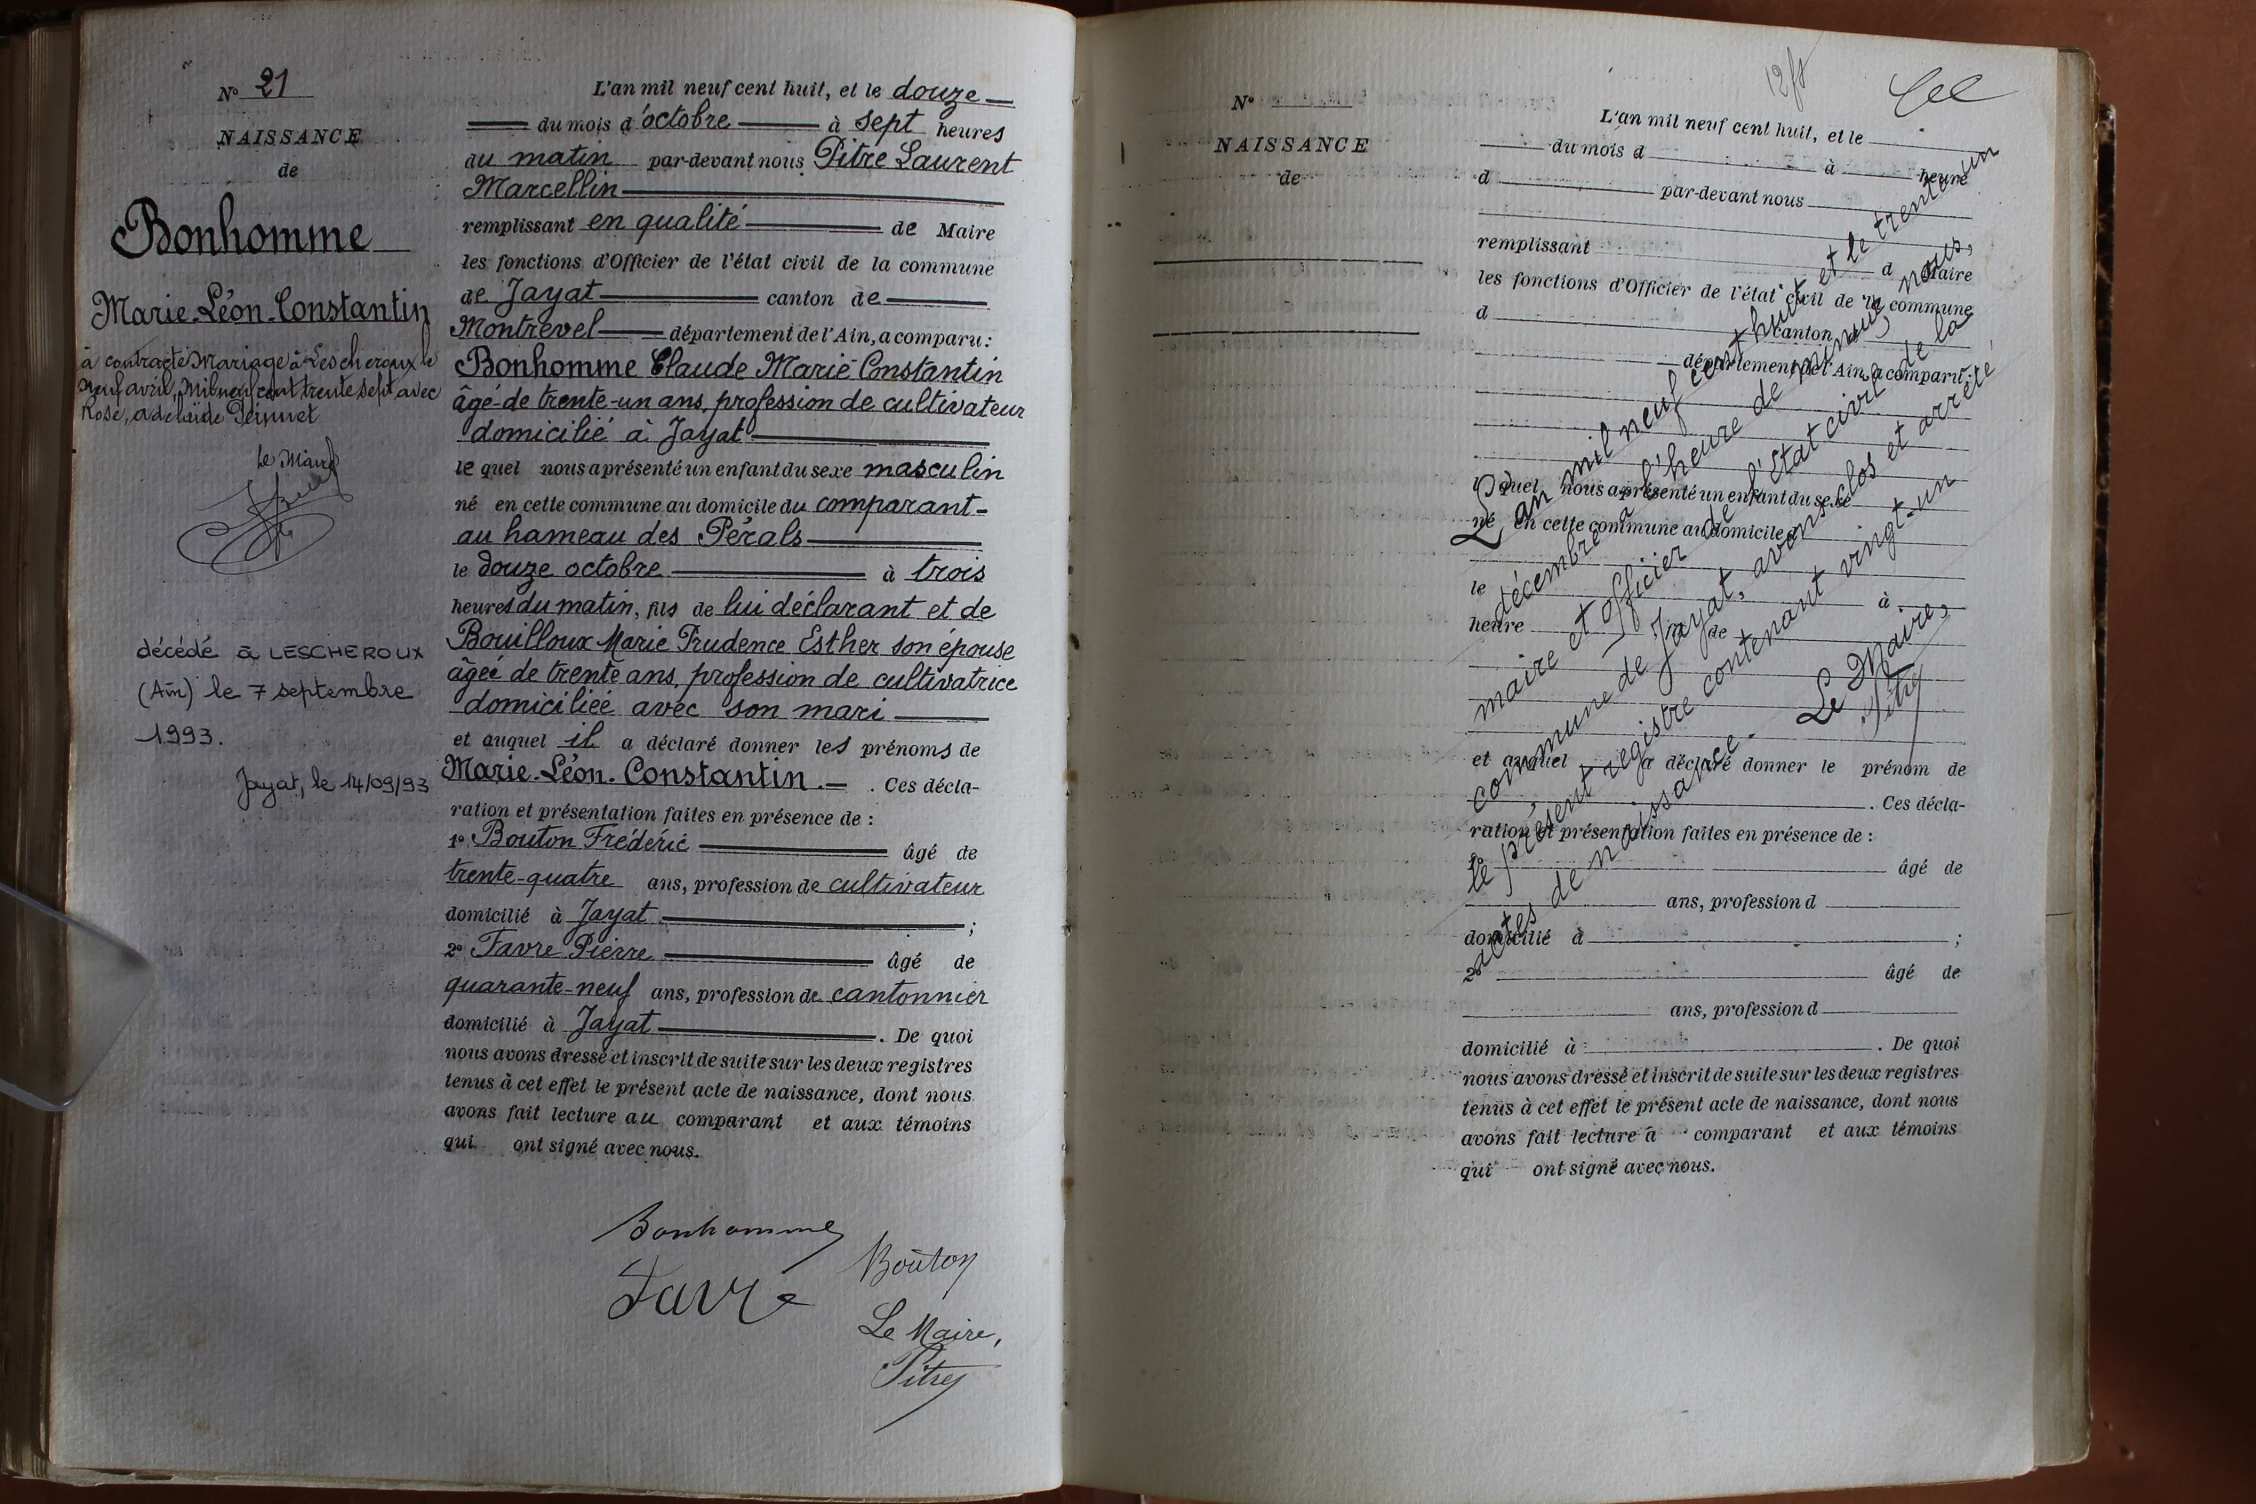 N° 21
NAISSANCE
de
Bonhomme
Marie-Léon-Constantin
à contracté Mariage à Lescheroux le
avril, Mil neuf cent trente sept avec
Rose, adelaïde
Le Maire
décédé à LESCHEROUX
(Ain) le 7 septembre
1993.
Jayat, le 14/09/93
L'an mil neuf cent huit, et le douze
du mois d'octobre à sept heures
du matin par-devant nous Pitre Laurent
Marcellin
remplissant en qualité de Maire
les fonctions d'Officier de l'état civil de la commune
de Jayat canton de
Montrevel département de l'Ain, a comparu :
Bonhomme Claude Marie Constantin
âgé de trente-un ans, profession de cultivateur
domicilié à Jayat
lequel nous a présenté un enfant du sexe masculin
né en cette commune au domicile du comparant
au hameau des Pérals
le douze octobre à trois
heures du matin, fils de lui déclarant et de
Bouilloux Marie Prudence Esther son épouse
âgée de trente ans, profession de cultivatrice
domiciliée avec son mari
et auquel il a déclaré donner les prénoms de
Marie-Léon-Constantin. . Ces décla-
ration et présentation faites en présence de :
1° Bouton Frédéric âgé de
trente-quatre ans, profession de cultivateur
domicilié à Jayat ;
2° Favre Pierre âgé de
quarante-neuf ans, profession de cantonnier
domicilié à Jayat . De quoi
nous avons dressé et inscrit de suite sur les deux registres
tenus à cet effet le présent acte de naissance, dont nous
avons fait lecture au comparant et aux témoins
qui ont signé avec nous.
Bonhomme
Bouton
Favre
Le Maire,
Pitre
N°
NAISSANCE
de
L'an mil neuf cent huit, et le
du mois d à heure
d par-devant nous
remplissant d Maire
les fonctions d'Officier de l'état civil de la commune
d canton d
département de l'Ain, a comparu :
l quel nous a présenté un enfant du sexe
né en cette commune au domicile d
le à
heure de
et auquel a déclaré donner le prénom de
. Ces décla-
ration et présentation faites en présence de :
1° âgé de
ans, profession d
domicilié à ;
2° âgé de
ans, profession d
domicilié à . De quoi
nous avons dressé et inscrit de suite sur les deux registres
tenus à cet effet le présent acte de naissance, dont nous
avons fait lecture a comparant et aux témoins
qui ont signé avec nous.
L'an mil neuf cent huit et le trente-un
décembre à l'heure de minuit, nous,
maire et officier de l'Etat civil de la
commune de Jayat, avons clos et arrêté
le présent registre contenant vingt-un
actes de naissance.
Le Maire,
Pitre